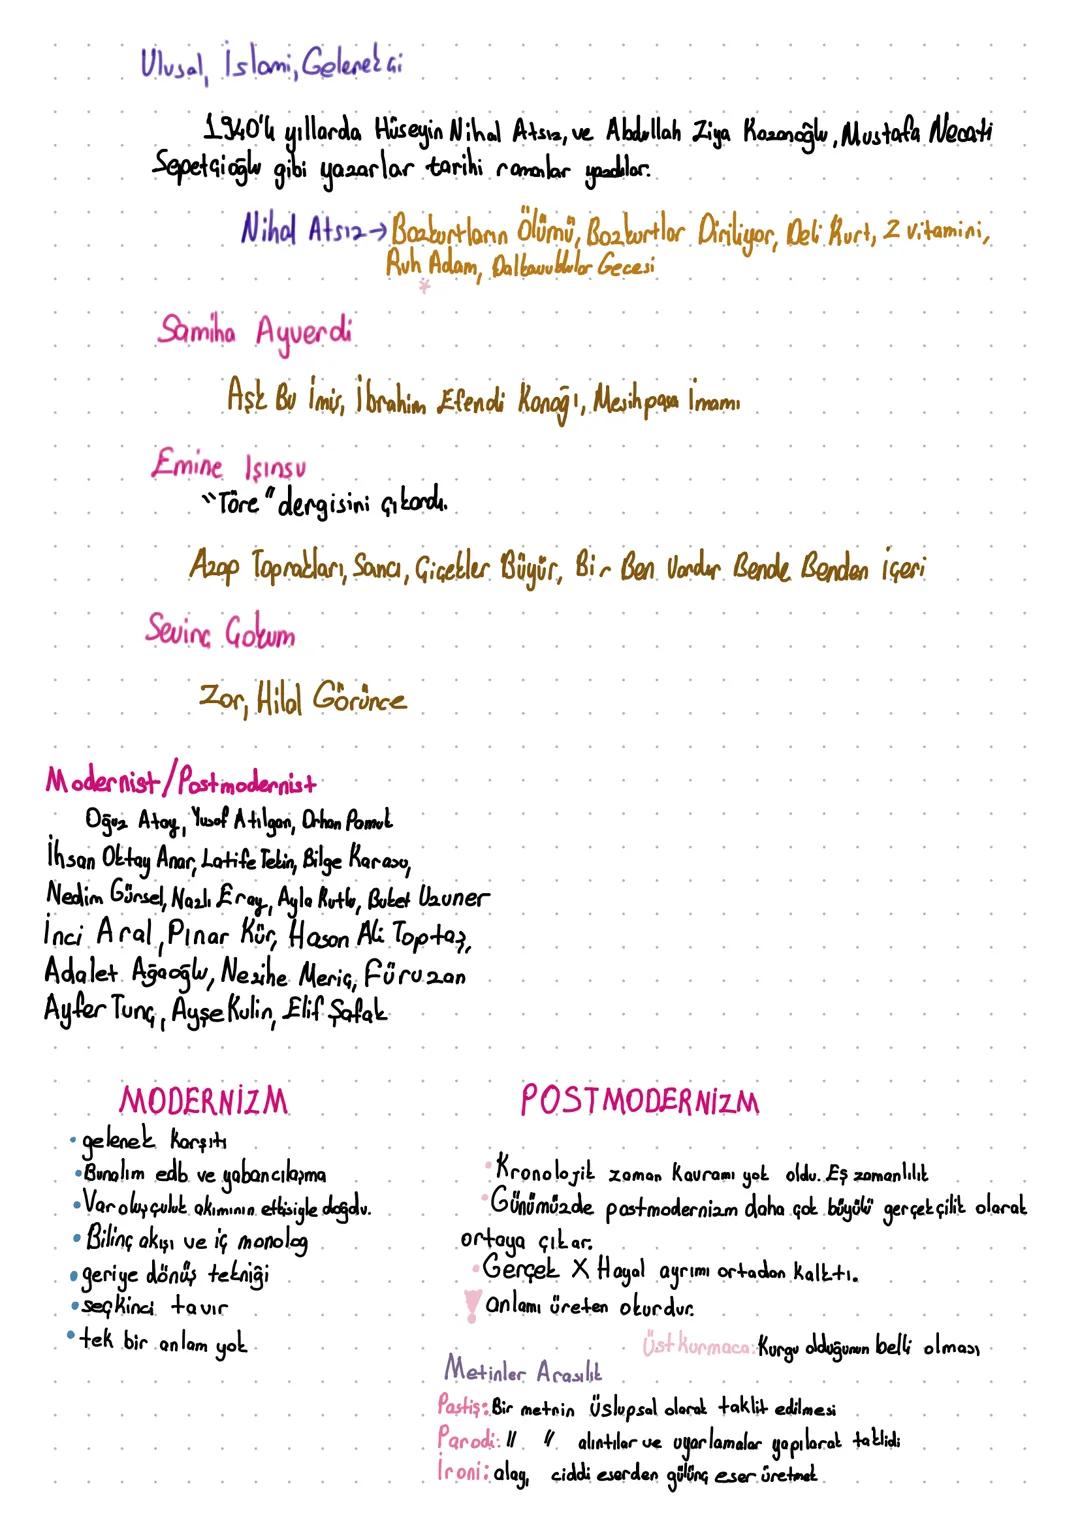 Ulusal, İslami, Gelenekçi
1940'lı yıllarda Hüseyin Nihal Atsız, ve Abdullah Ziya Kozanoğlu, Mustafa Necati
Sepetçioğlu gibi yazarlar tarihi romanlar yazdılar.
Nihal Atsız → Bozkurtların Ölümü, Bozkurtlar Diriliyor, Deli Kurt, Z vitamini,
Ruh Adam, Dalkavuklular Gecesi
*
Samiha Ayverdi
Aşk Bu İmiş, İbrahim Efendi Konağı, Mesihpaşa İmamı
Emine Işınsu
"Töre" dergisini çıkardı.
Azap Toprakları, Sancı, Çiçekler Büyür, Bir Ben Vardır Bende Benden İçeri
Sevinç Çokum
Zor, Hilal Görünce
Modernist/Postmodernist
Oğuz Atay, Yusuf Atılgan, Orhan Pamuk
İhsan Oktay Anar, Latife Tekin, Bilge Karasu,
Nedim Gürsel, Nazlı Eray, Ayla Kutlu, Buket Uzuner
İnci Aral, Pınar Kür, Hasan Ali Toptaş,
Adalet Ağaoğlu, Nezihe Meriç, Füruzan
Ayfer Tunç, Ayşe Kulin, Elif Şafak
MODERNİZM
• gelenek karşıtı
• Bunalım edb. ve yabancılaşma
• Varoluşçuluk akımının etkisiyle doğdu.
• Bilinç akışı ve iç monolog
• geriye dönüş tekniği
• seçkinci tavır
• tek bir anlam yok
POSTMODERNİZM
• Kronolojik zaman kavramı yok oldu. Eş zamanlılık
• Günümüzde postmodernizm daha çok büyülü gerçekçilik olarak
ortaya çıkar.
• Gerçek X Hayal ayrımı ortadan kalktı.
! anlamı üreten okurdur.
Üstkurmaca: Kurgu olduğunun belli olması
Metinler Arasılık
Pastiş: Bir metnin üslupsal olarak taklit edilmesi
Parodi: " " alıntılar ve uyarlamalar yapılarak taklidi
İroni: alay, ciddi eserden gülünç eser üretmek